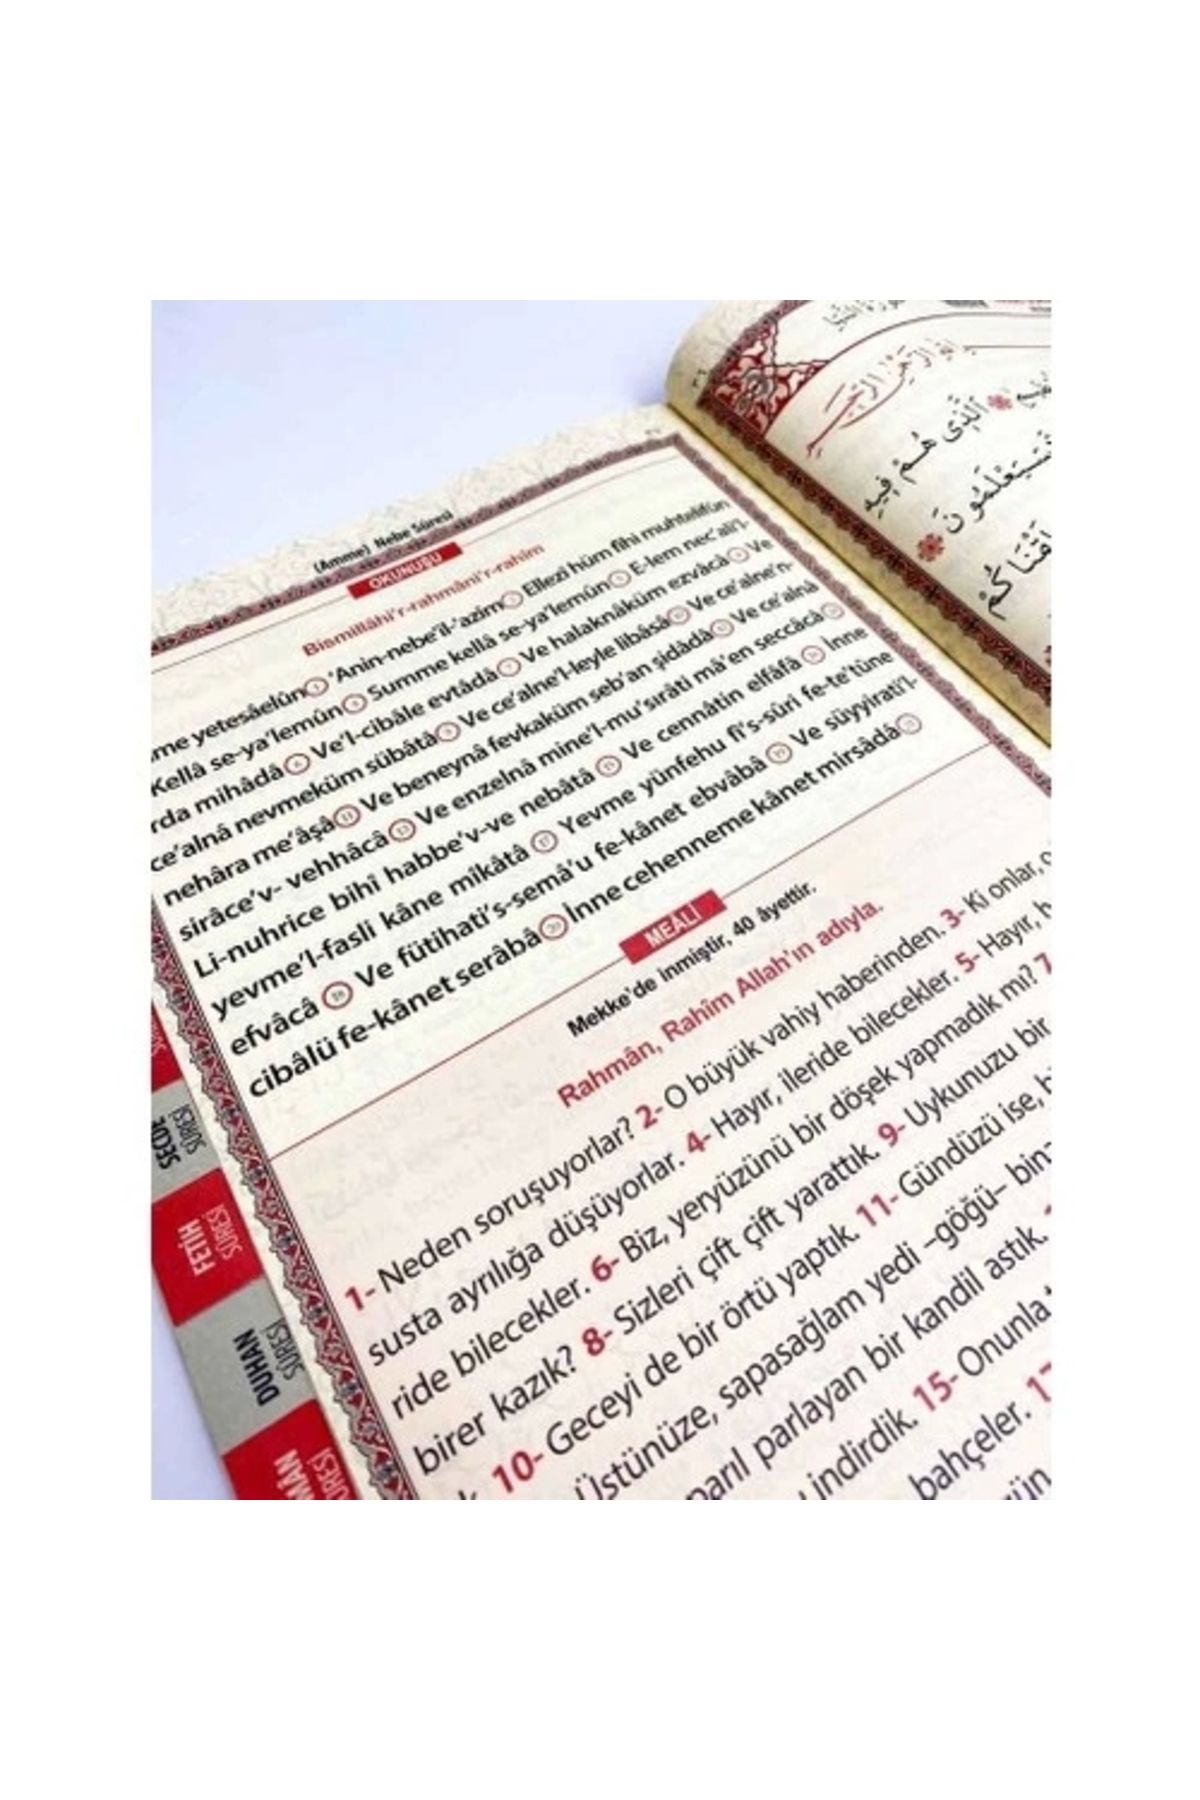 (Amme) Nebe Sûresi
OKUNUŞU
Bismillâhi'r-rahmâni'r-rahîm
yetesâelûn 1 'Anin-nebe'il-'azîm 2 Ellezî hüm fîhi muhtelifûn
Kellâ se-ya'lemûn Summe kellâ se-ya'lemûn 5 E-lem nec'ali'l-
mihâdâ 6 Ve'l-cibâle evtâdâ 7 Ve halaknâküm ezvâcâ 8 Ve
ce'alnâ nevmeküm sübâtâ 9 Ve ce'alne'l-leyle libâsâ 10 Ve ce'alne'n-
nehâra me'âşâ 11 Ve beneynâ fevkaküm seb'an şidâdâ Ve ce'alnâ
sirâce'v- vehhâcâ 13 Ve enzelnâ mine'l-mu'sırâti mâ'en seccâcâ
Li-nuhrice bihî habbe'v-ve nebâtâ 15 Ve cennâtin elfâfâ 16 İnne
yevme'l-fasli kâne mîkâtâ 17 Yevme yünfehu fi's-sûri fe-te'tûne
efvâcâ 18 Ve fütihati's-semâ'u fe-kânet ebvâbâ 19 Ve süyyirati'l-
cibâlü fe-kânet serâbâ 20 İnne cehenneme kânet mirsâdâ 21
MEALİ
Mekke'de inmiştir, 40 âyettir.
Rahmân, Rahîm Allah'ın adıyla.
1- Neden soruşuyorlar? 2- O büyük vahiy haberinden. 3- Ki onlar,
susta ayrılığa düşüyorlar. 4- Hayır, ileride bilecekler. 5- Hayır,
ride bilecekler. 6- Biz, yeryüzünü bir döşek yapmadık mı? 7
birer kazık? 8- Sizleri çift çift yarattık. 9- Uykunuzu bir
10- Geceyi de bir örtü yaptık. 11- Gündüzü ise,
Üstünüze, sapasağlam yedi –göğü– bin
parıl parlayan bir kandil astık.
indirdik. 15- Onunla
bahçeler.
FETİH
SÛRESİ
DUHAN
SÛRESİ
ٱلَّذِى هُمْ فِيهِ